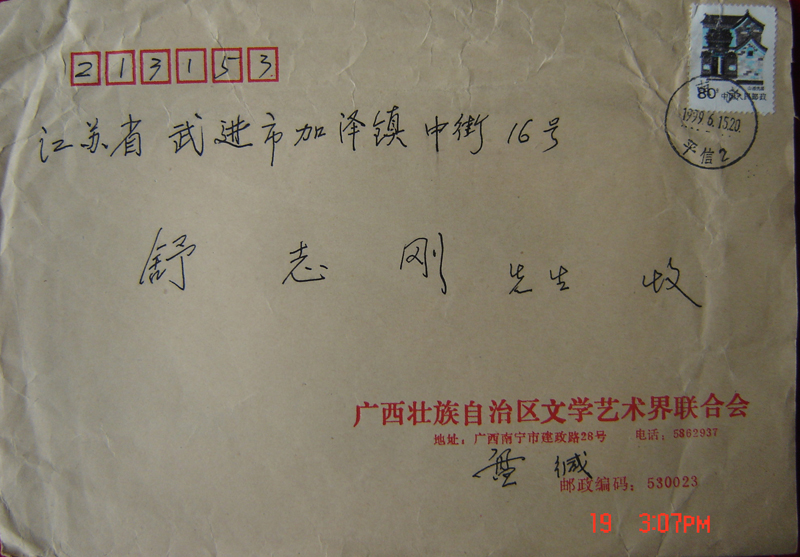 213153
80分 中国人民邮政
1999.6.15.20
平信2
江苏省 武进市加泽镇 中街 16号
舒志刚 先生 收
广西壮族自治区文学艺术界联合会
地址：广西南宁市建政路28号 电话：5862937
缄
邮政编码：530023
19 3:07PM